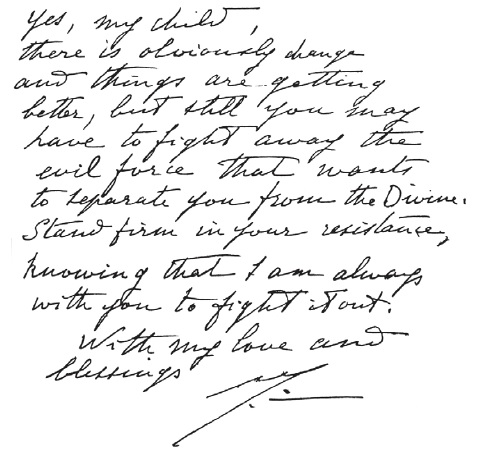 Yes, my child,
there is obviously change
and things are getting
better, but still you may
have to fight away the
evil force that wants
to separate you from the Divine.
Stand firm in your resistance,
knowing that I am always
with you to fight it out.
With my love and
blessings